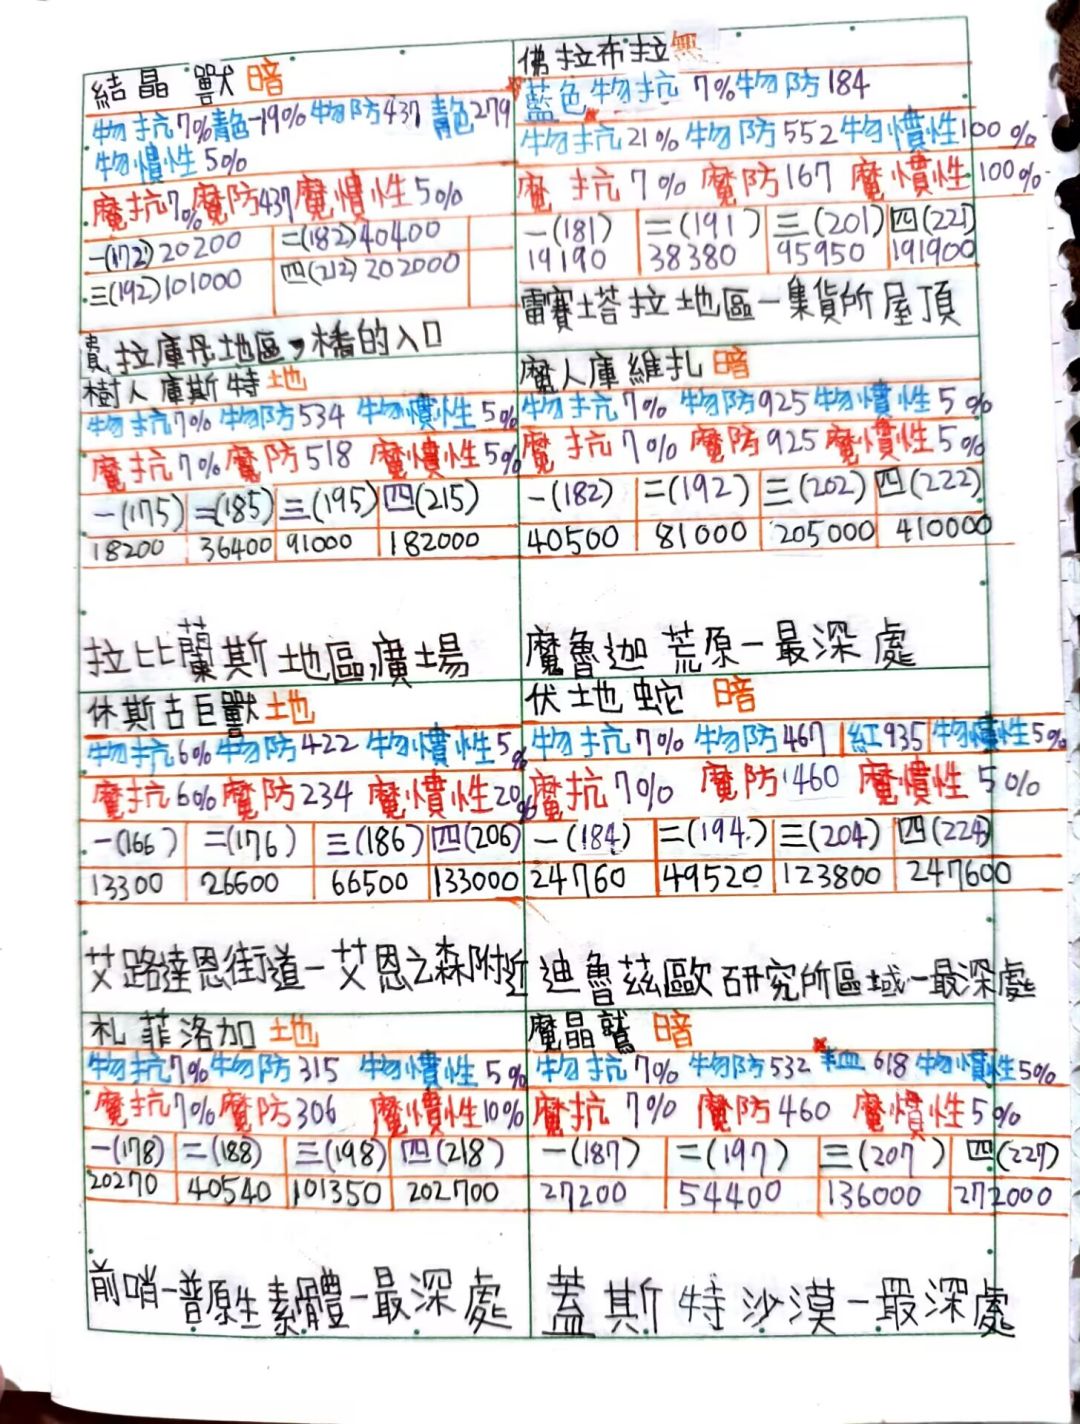 結晶獸 暗
物抗7%青色-19%物防437 青色279
物慣性5%
魔抗7%魔防437魔慣性5%
一(172)20200 二(182)40400
三(192)101000 四(212)202000
費拉庫丹地區,橋的入口
樹人庫斯特 地
物抗7% 物防534 物慣性5%
魔抗7%魔防518 魔慣性5%
一(175) 二(185) 三(195) 四(215)
18200 36400 91000 182000
拉比蘭斯地區,廣場
休斯古巨獸 土地
物抗6%物防422 物慣性5%
魔抗6%魔防234 魔慣性20%
一(166) 二(176) 三(186) 四(206)
13300 26600 66500 133000
艾路達恩街道-艾恩之森附近
札菲洛加 土地
物抗7%物防315 物慣性5%
魔抗7%魔防306 魔慣性10%
一(178) 二(188) 三(198) 四(218)
20270 40540 101350 202700
前哨-普原生素體-最深處
佛拉布拉 無
藍色物抗7%物防184
物抗21%物防552物慣性100%
魔抗7%魔防167魔慣性100%
一(181) 二(191) 三(201) 四(221)
19190 38380 95950 191900
雷賽塔拉地區-集貨所屋頂
魔人庫維扎 暗
物抗7% 物防925物慣性5%
魔抗7%魔防925魔慣性5%
一(182) 二(192) 三(202) 四(222)
40500 81000 205000 410000
魔魯迦荒原-最深處
伏地蛇 暗
物抗7% 物防467 紅935 物慣性5%
魔抗7% 魔防460 魔慣性5%
一(184) 二(194) 三(204) 四(224)
24760 49520 123800 247600
迪魯茲歐研究所區域-最深處
魔晶鷲 暗
物抗7% 物防532 618 物慣性5%
魔抗7% 魔防460 魔慣性5%
一(187) 二(197) 三(207) 四(227)
27200 54400 136000 272000
蓋斯特沙漠-最深處